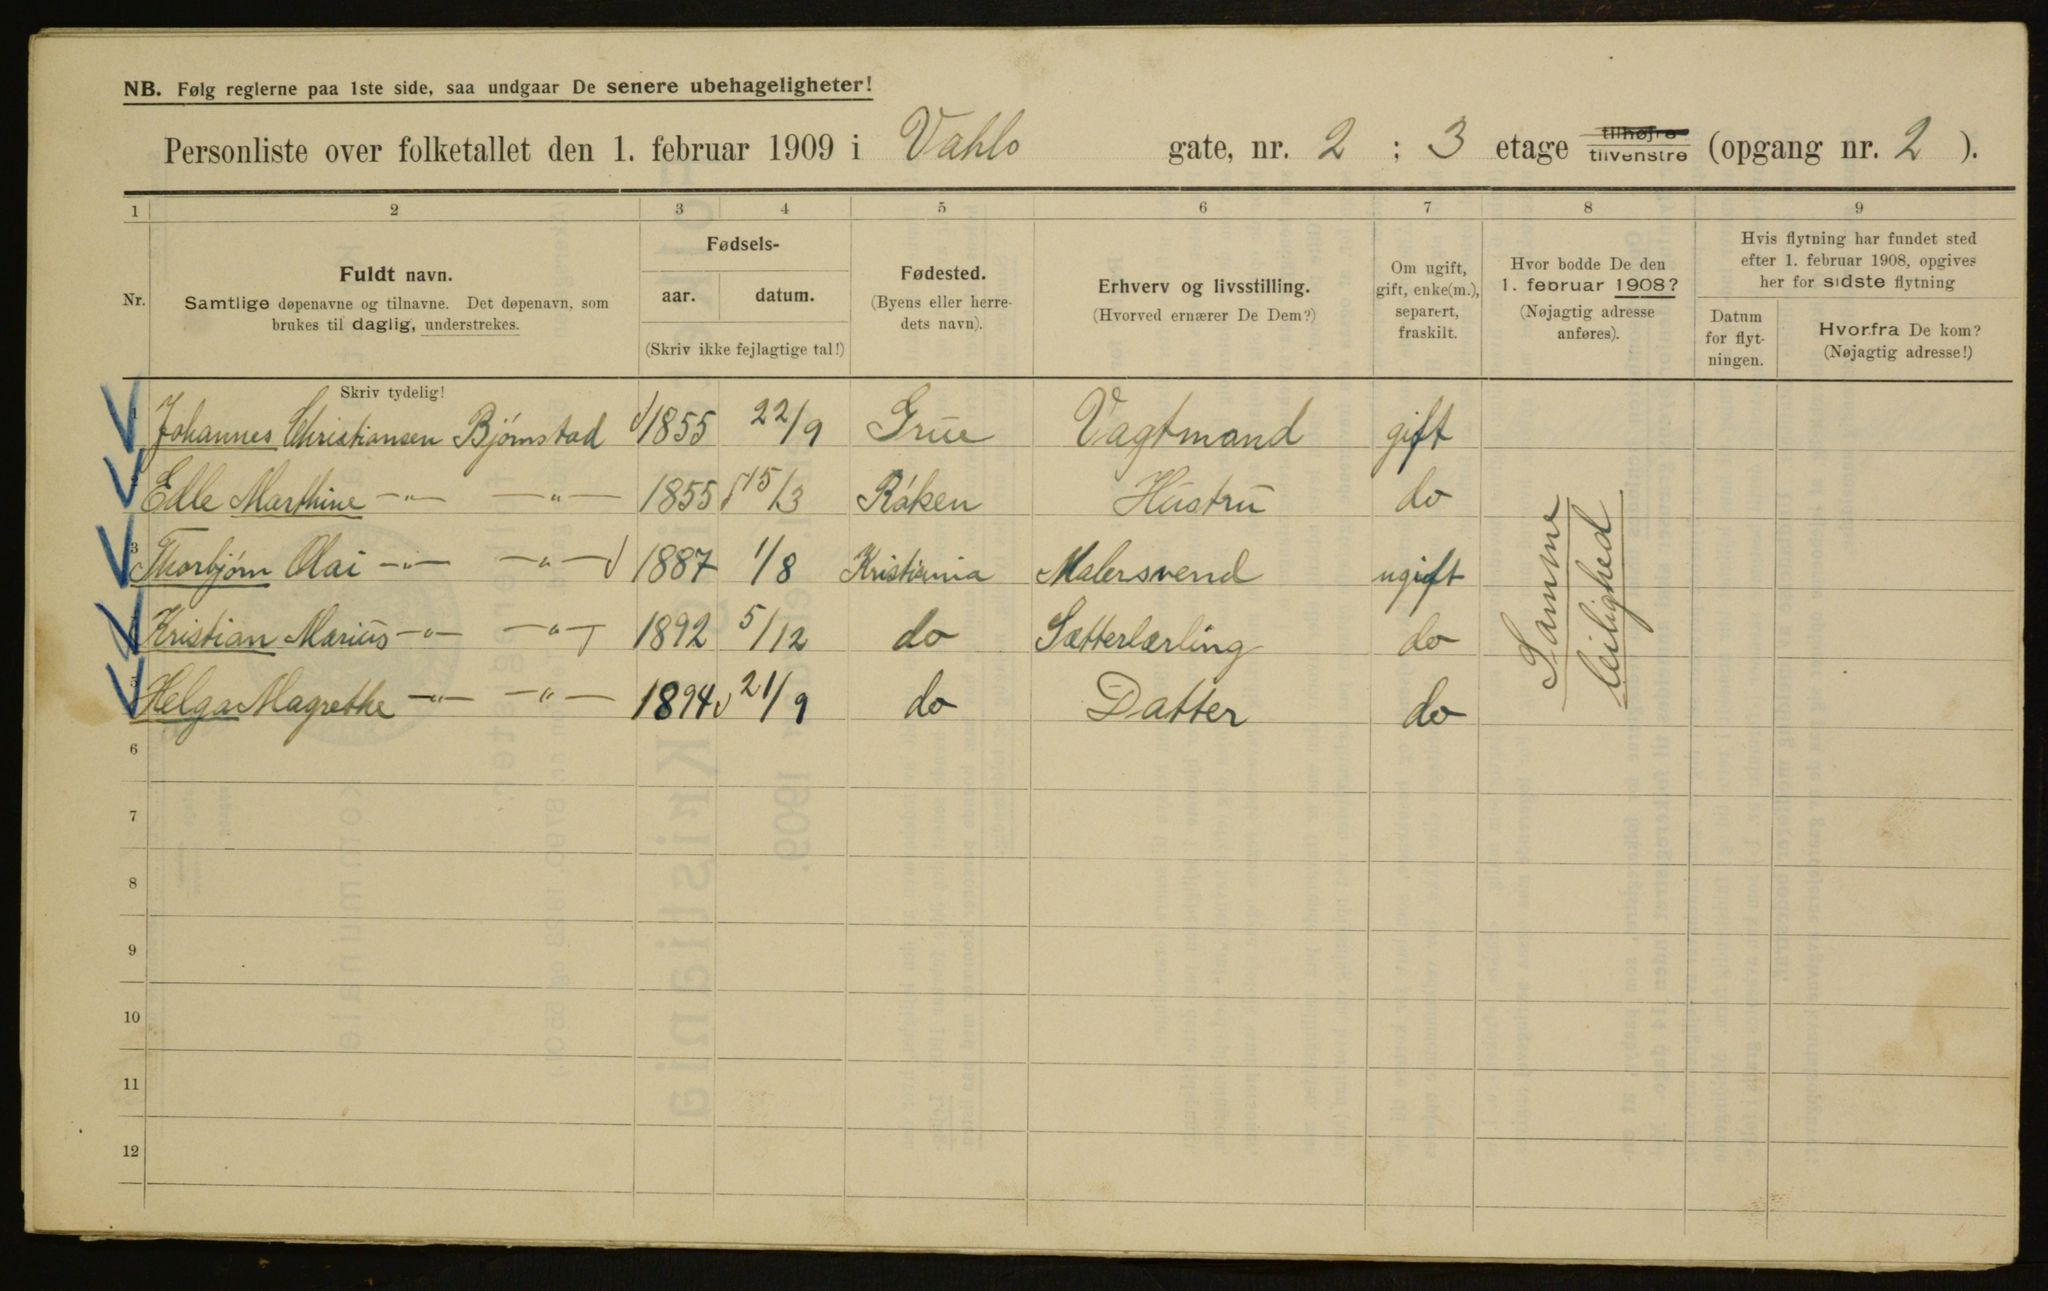 NB. Følg reglerne paa 1ste side, saa undgaar De senere ubehageligheter!
Personliste over folketallet den 1. februar 1909 i Vahls gate, nr. 2 ; 3 etage tilhøjre tilvenstre (opgang nr. 2 ).
1 2 3 4 5 6 7 8 9
Nr.
Fuldt navn.
Samtlige døpenavne og tilnavne. Det døpenavn, som
brukes til daglig, understrekes.
Fødsels-
aar. datum.
(Skriv ikke fejlagtige tal!)
Fødested.
(Byens eller herre-
dets navn).
Erhverv og livsstilling.
(Hvorved ernærer De Dem?)
Om ugift,
gift, enke(m.),
separert,
fraskilt.
Hvor bodde De den
1. februar 1908?
(Nøjagtig adresse
anføres).
Hvis flytning har fundet sted
efter 1. februar 1908, opgives
her for sidste flytning
Datum
for flyt-
ningen.
Hvorfra De kom?
(Nøjagtig adresse!)
Skriv tydelig!
1 Johannes Christiansen Bjørnstad 1855 22/9 Grue Vagtmand gift
Edle Marthine –"– –"– 1855 15/3 Røken Hustru do
3 Thorbjørn Olai –"– –"– 1887 1/8 Kristiania Malersvend ugift
Kristian Marius –"– –"– 1892 5/12 do Sætterlærling do
5 Helga Magrethe –"– –"– 1894 21/9 do Datter do
Samme
leilighed
6
7
8
9
10
11
12